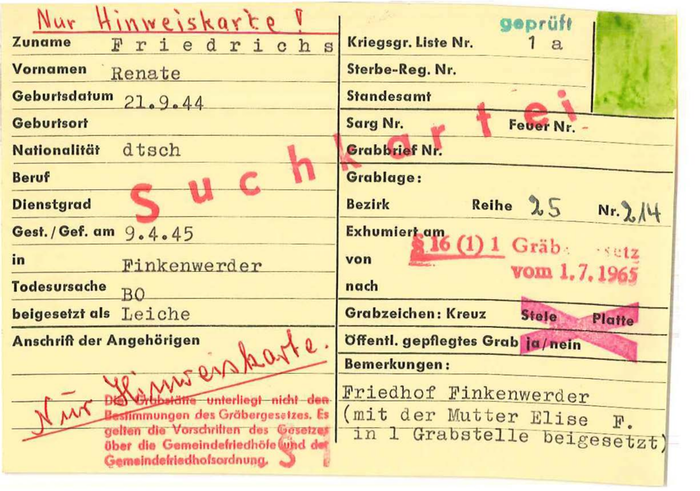 Nur Hinweiskarte !
geprüft
Zuname Friedrichs
Vornamen Renate
Geburtsdatum 21.9.44
Geburtsort
Nationalität dtsch
Beruf
Dienstgrad
Gest./Gef. am 9.4.45
in Finkenwerder
Todesursache BO
beigesetzt als Leiche
Anschrift der Angehörigen
Nur Hinweiskarte.
Die Grabstätte unterliegt nicht den
Bestimmungen des Gräbergesetzes. Es
gelten die Vorschriften des Gesetzes
über die Gemeindefriedhöfe und der
Gemeindefriedhofsordnung.
S
Suchkartei
Kriegsgr. Liste Nr. 1 a
Sterbe-Reg. Nr.
Standesamt
Sarg Nr. Feuer Nr.
Grabbrief Nr.
Grablage:
Bezirk Reihe 25 Nr. 214
Exhumiert am
§ 16 (1) 1
von vom 1.7.1965
nach
Grabzeichen: Kreuz Stele Platte
Öffentl. gepflegtes Grab ja/nein
Bemerkungen:
Friedhof Finkenwerder
(mit der Mutter Elise F.
in 1 Grabstelle beigesetzt)